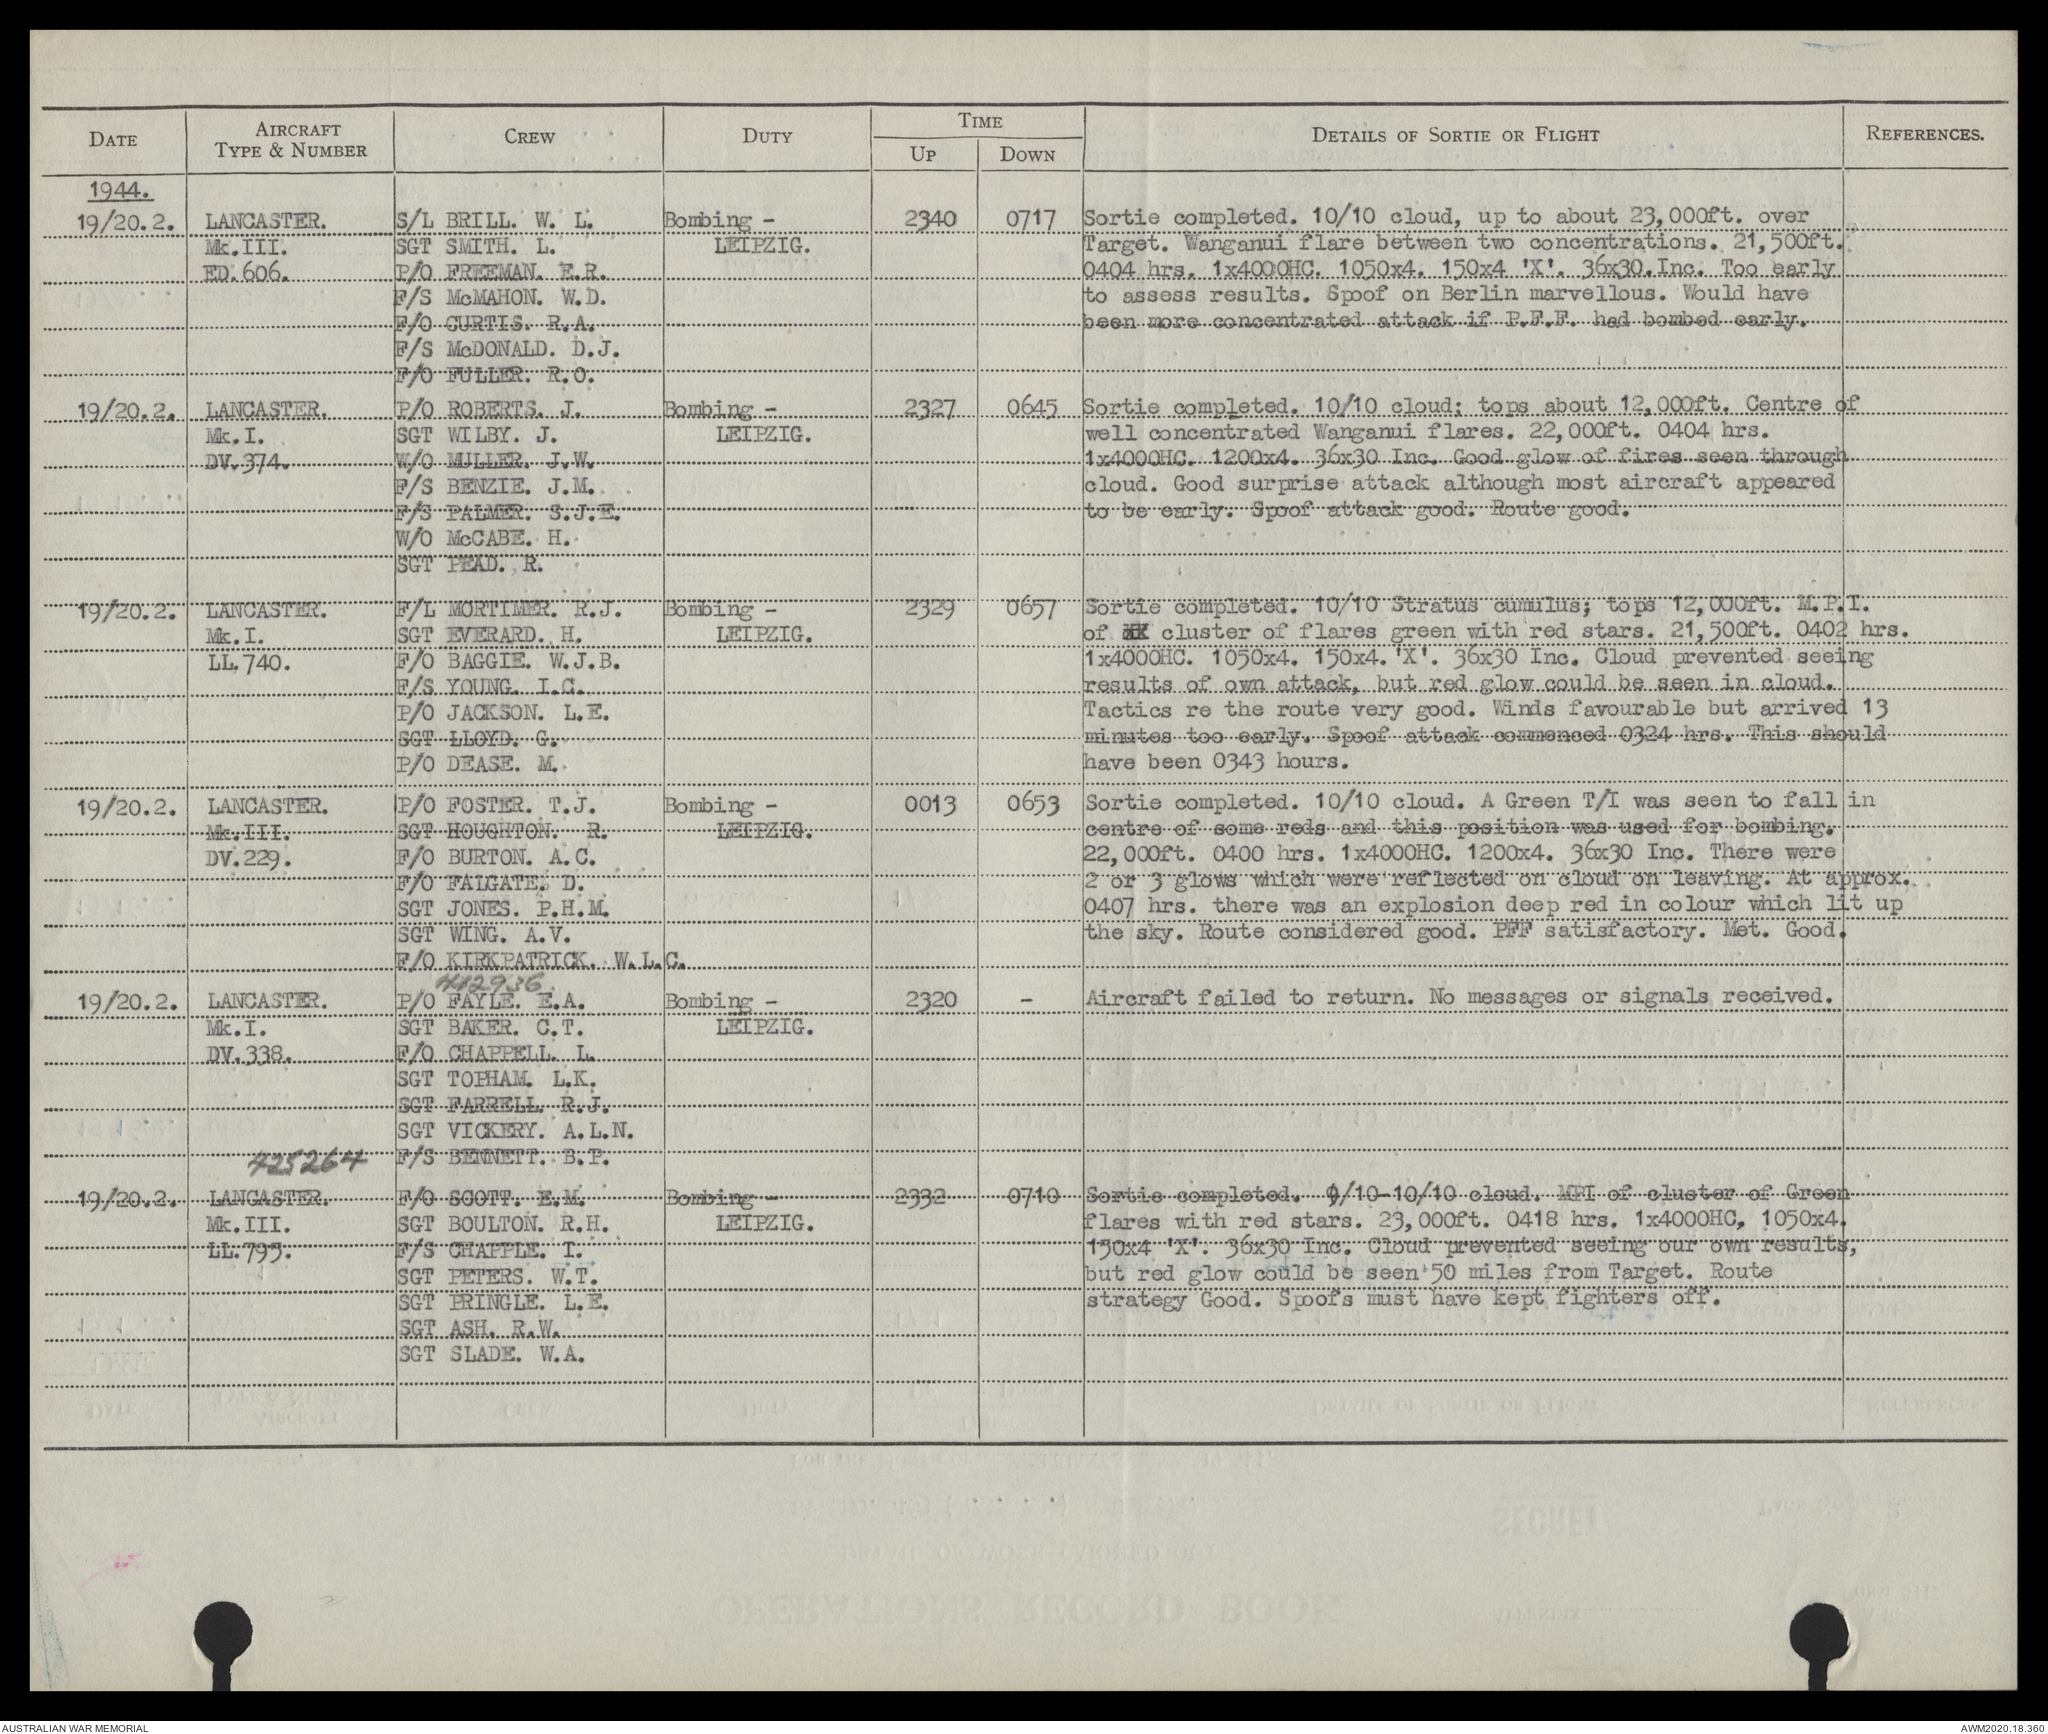 DATE AIRCRAFT TYPE & NUMBER CREW DUTY TIME UP DOWN DETAILS OF SORTIE OR FLIGHT REFERENCES.
1944.
19/20.2. LANCASTER. S/L BRILL. W. L. Bombing - 2340 0717 Sortie completed. 10/10 cloud, up to about 23,000ft. over
Mk.III. SGT SMITH. L. LEIPZIG. Target. Wanganui flare between two concentrations. 21,500ft.
ED.606. P/O FREEMAN. E.R. 0404 hrs. 1x4000HC. 1050x4. 150x4 'X'. 36x30.Inc. Too early
F/S McMAHON. W.D. to assess results. Spoof on Berlin marvellous. Would have
F/O CURTIS. R.A. been more concentrated attack if P.F.F. had bombed early.
F/S McDONALD. D.J.
F/O FULLER. R.O.
19/20.2. LANCASTER. P/O ROBERTS. J. Bombing - 2327 0645 Sortie completed. 10/10 cloud; tops about 12,000ft. Centre of
Mk.I. SGT WILBY. J. LEIPZIG. well concentrated Wanganui flares. 22,000ft. 0404 hrs.
DV.374. W/O MULLER. J.W. 1x4000HC. 1200x4. 36x30 Inc. Good glow of fires seen through
F/S BENZIE. J.M. cloud. Good surprise attack although most aircraft appeared
F/S PALMER. S.J.E. to be early. Spoof attack good. Route good.
W/O McCABE. H.
SGT PEAD. R.
19/20.2. LANCASTER. F/L MORTIMER. R.J. Bombing - 2329 0657 Sortie completed. 10/10 Stratus cumulus; tops 12,000ft. M.P.I.
Mk.I. SGT EVERARD. H. LEIPZIG. of cluster of flares green with red stars. 21,500ft. 0402 hrs.
LL.740. F/O BAGGIE. W.J.B. 1x4000HC. 1050x4. 150x4.'X'. 36x30 Inc. Cloud prevented seeing
F/S YOUNG. I.C. results of own attack, but red glow could be seen in cloud.
P/O JACKSON. L.E. Tactics re the route very good. Winds favourable but arrived 13
SGT LLOYD. G. minutes too early. Spoof attack commenced 0324 hrs. This should
P/O DEASE. M. have been 0343 hours.
19/20.2. LANCASTER. P/O FOSTER. T.J. Bombing - 0013 0653 Sortie completed. 10/10 cloud. A Green T/I was seen to fall in
Mk.III. SGT HOUGHTON. R. LEIPZIG. centre of some reds and this position was used for bombing.
DV.229. F/O BURTON. A.C. 22,000ft. 0400 hrs. 1x4000HC. 1200x4. 36x30 Inc. There were
F/O FALGATE. D. 2 or 3 glows which were reflected on cloud on leaving. At approx.
SGT JONES. P.H.M. 0407 hrs. there was an explosion deep red in colour which lit up
SGT WING. A.V. the sky. Route considered good. PFF satisfactory. Met. Good.
F/O KIRKPATRICK. W.L.C.
412936.
19/20.2. LANCASTER. P/O FAYLE. E.A. Bombing - 2320 - Aircraft failed to return. No messages or signals received.
Mk.I. SGT BAKER. C.T. LEIPZIG.
DV.338. F/O CHAPPELL. L.
SGT TOPHAM. L.K.
SGT FARRELL. R.J.
SGT VICKERY. A.L.N.
425264 F/S BENNETT. B.P.
19/20.2. LANCASTER. F/O SCOTT. E.M. Bombing - 2332 0710 Sortie completed. 9/10-10/10 cloud. MPI of cluster of Green
Mk.III. SGT BOULTON. R.H. LEIPZIG. flares with red stars. 23,000ft. 0418 hrs. 1x4000HC, 1050x4.
LL.795. F/S CHAPPLE. T. 150x4 'X'. 36x30 Inc. Cloud prevented seeing our own results,
SGT PETERS. W.T. but red glow could be seen 50 miles from Target. Route
SGT PRINGLE. L.E. strategy Good. Spoofs must have kept fighters off.
SGT ASH. R.W.
SGT SLADE. W.A.
AUSTRALIAN WAR MEMORIAL AWM2020.18.360